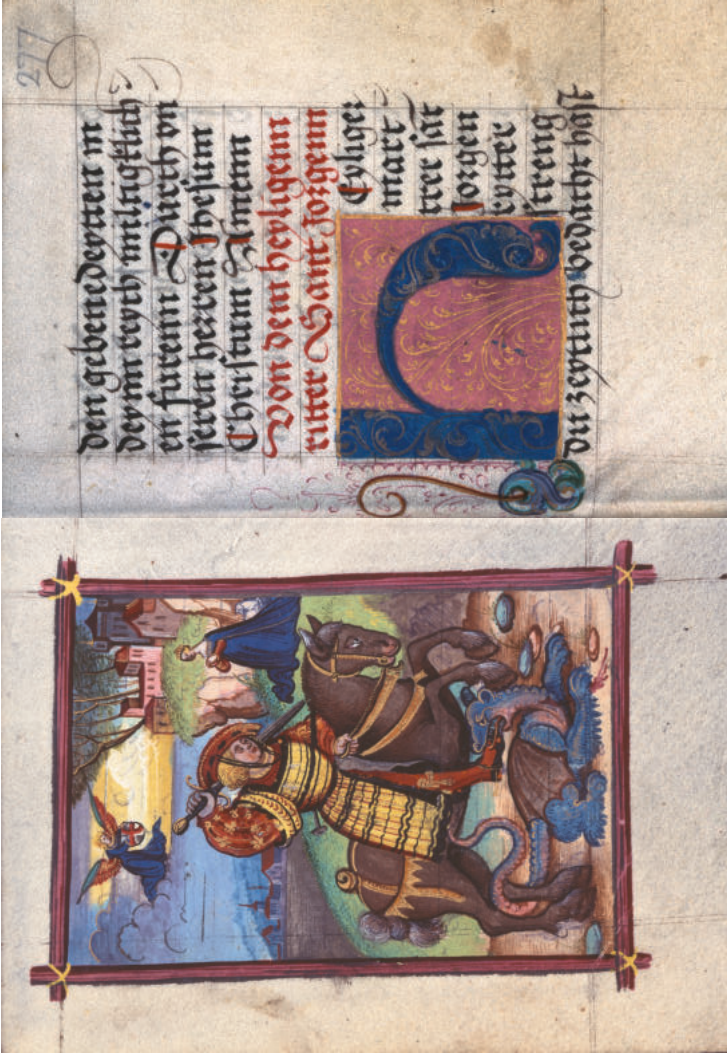 277
den gebenedeytten in
deynn reych miltigklich
en furenn Durch vn
seren herren Jhesum
Christum Amenn
Von dem heyligenn
ritter Sant Jorgenn
hEyliger
mart
rer sāt
Jorgen
rytter
streng
du zeytlich hast